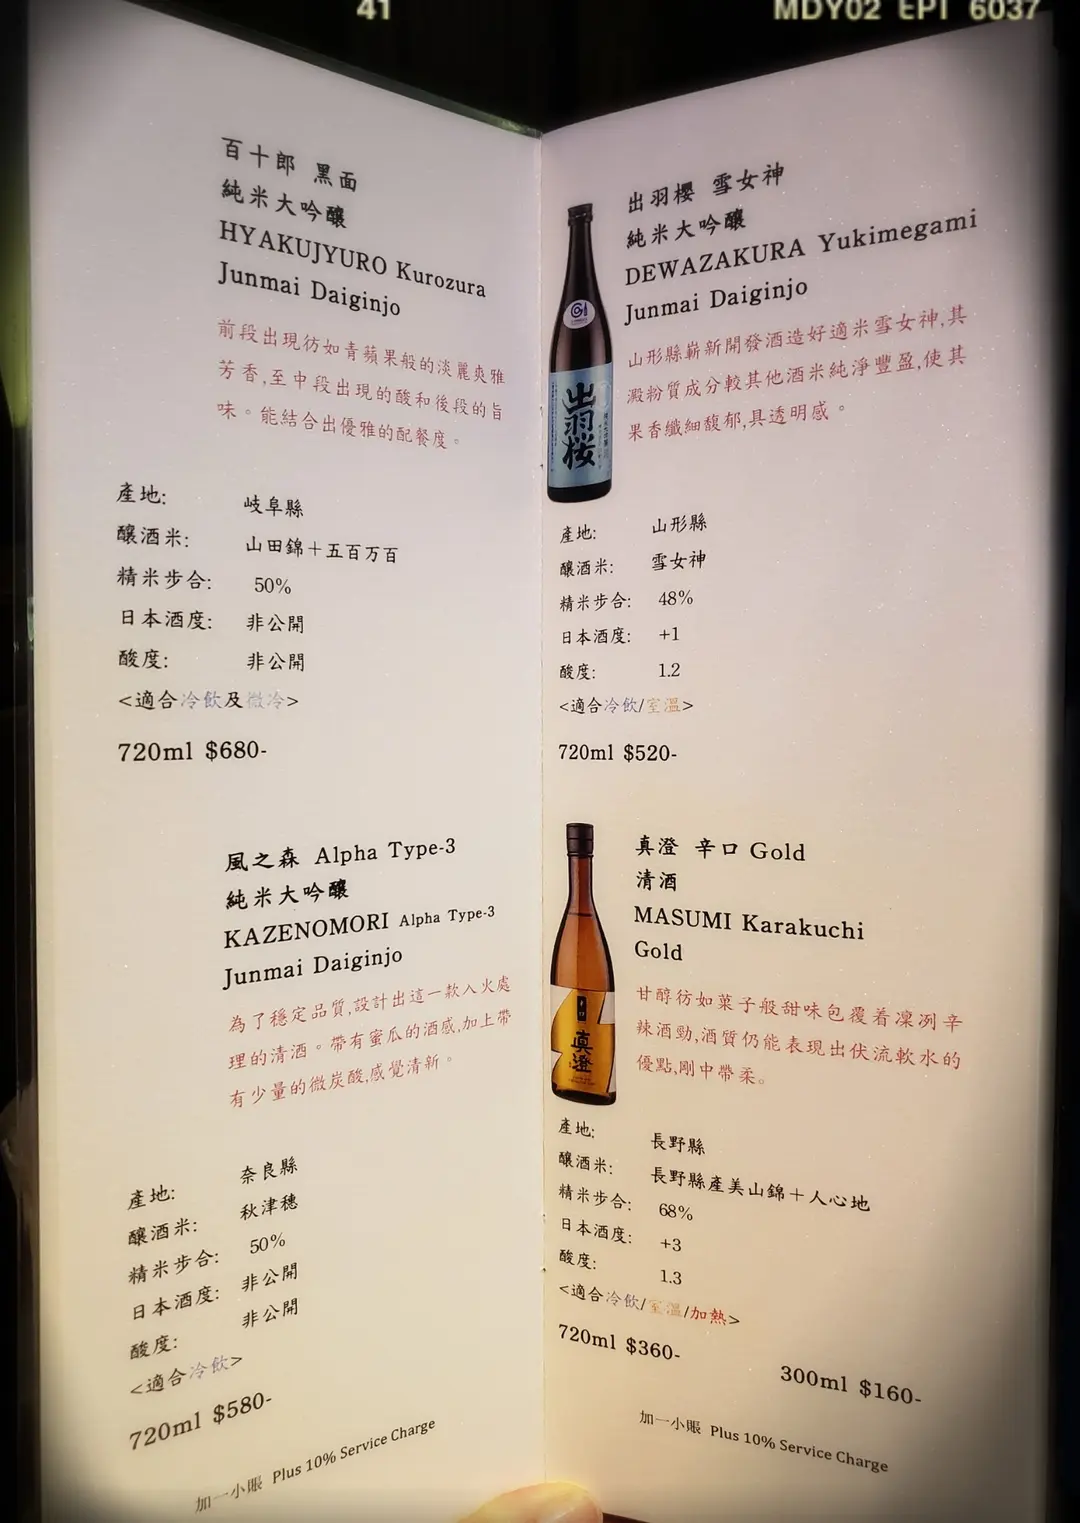 41
MDY02 EPT 6037
百十郎 黑面
純米大吟釀
HYAKUJYURO Kurozura
Junmai Daiginjo
前段出現彷如青蘋果般的淡麗爽雅
芳香,至中段出現的酸和後段的旨
味。能結合出優雅的配餐度。
產地: 岐阜縣
釀酒米: 山田錦+五百万百
精米步合: 50%
日本酒度: 非公開
酸度: 非公開
<適合冷飲及微冷>
720ml $680-
風之森 Alpha Type-3
純米大吟釀
KAZENOMORI Alpha Type-3
Junmai Daiginjo
為了穩定品質,設計出這一款入火處
理的清酒。帶有蜜瓜的酒感,加上帶
有少量的微炭酸,感覺清新。
產地: 奈良縣
釀酒米: 秋津穗
精米步合: 50%
日本酒度: 非公開
酸度: 非公開
<適合冷飲>
720ml $580-
加一小賬 Plus 10% Service Charge
出羽櫻 雪女神
純米大吟釀
DEWAZAKURA Yukimegami
Junmai Daiginjo
山形縣嶄新開發酒造好適米雪女神,其
澱粉質成分較其他酒米純淨豐盈,使其
果香纖細馥郁,具透明感。
出羽桜
產地: 山形縣
釀酒米: 雪女神
精米步合: 48%
日本酒度: +1
酸度: 1.2
<適合冷飲/室溫>
720ml $520-
真澄 辛口 Gold
清酒
MASUMI Karakuchi
Gold
甘醇彷如菓子般甜味包覆着凜冽辛
辣酒勁,酒質仍能表現出伏流軟水的
優點,剛中帶柔。
辛口
真澄
產地: 長野縣
釀酒米: 長野縣產美山錦+人心地
精米步合: 68%
日本酒度: +3
酸度: 1.3
<適合冷飲/室溫/加熱>
720ml $360-
300ml $160-
加一小賬 Plus 10% Service Charge